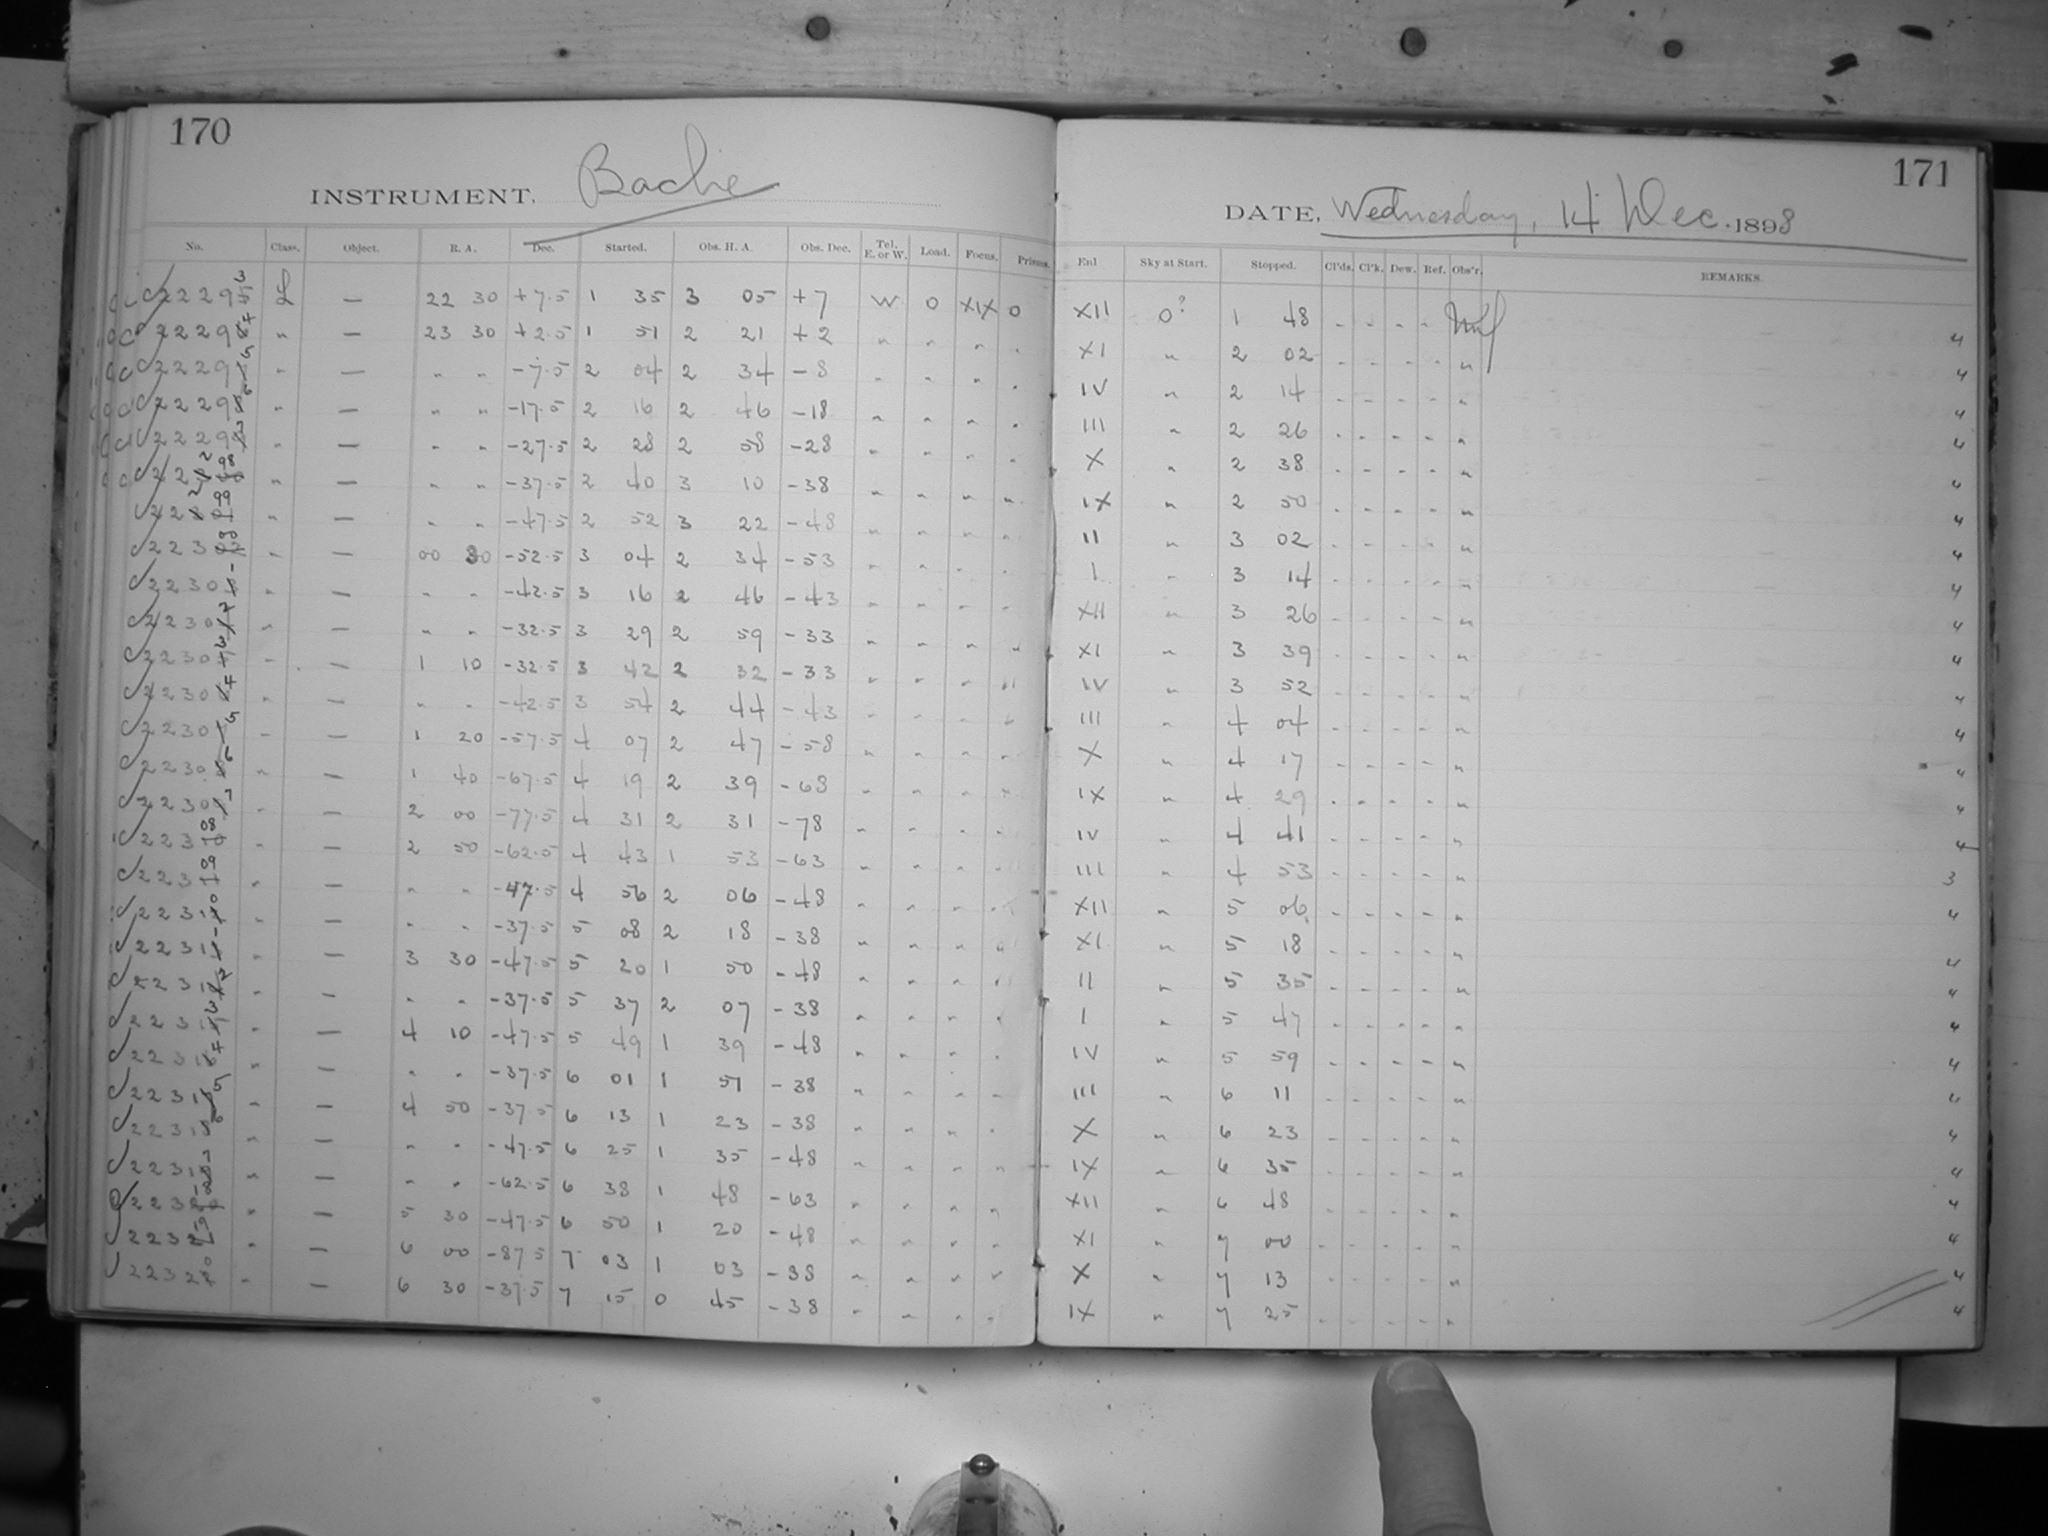 170
INSTRUMENT. Bache
No. Class. Object. R. A. Dec. Started. Obs. H. A. Obs. Dec. Tel. E. or W. Load. Focus. Prisms.
L — 22 30 +7.5 1 35 3 05 +7 W 0 XIX 0
" — 23 30 +2.5 1 51 2 21 +2 " " " "
" — " " -7.5 2 04 2 34 -8 " " " "
" — " " -17.5 2 16 2 46 -18 " " " "
" — " " -27.5 2 28 2 58 -28 " " " "
" — " " -37.5 2 40 3 10 -38 " " " "
" — " " -47.5 2 52 3 22 -48 " " " "
" — 00 30 -52.5 3 04 2 34 -53 " " " "
" — " " -42.5 3 16 2 46 -43 " " " "
" — " " -32.5 3 29 2 59 -33 " " " "
" — 1 10 -32.5 3 42 2 32 -33 " " " "
" — " " -42.5 3 54 2 44 -43 " " " "
" — 1 20 -57.5 4 07 2 47 -58 " " " "
" — 1 40 -67.5 4 19 2 39 -68 " " " "
" — 2 00 -77.5 4 31 2 31 -78 " " " "
" — 2 50 -62.5 4 43 1 53 -63 " " " "
" — " " -47.5 4 56 2 06 -48 " " " "
" — " " -37.5 5 08 2 18 -38 " " " "
" — 3 30 -47.5 5 20 1 50 -48 " " " "
" — " " -37.5 5 37 2 07 -38 " " " "
" — 4 10 -47.5 5 49 1 39 -48 " " " "
" — " " -37.5 6 01 1 51 -38 " " " "
" — 4 50 -37.5 6 13 1 23 -38 " " " "
" — " " -47.5 6 25 1 35 -48 " " " "
" — " " -62.5 6 38 1 48 -63 " " " "
" — 5 30 -47.5 6 50 1 20 -48 " " " "
" — 6 00 -37.5 7 03 1 03 -38 " " " "
" — 6 30 -37.5 7 15 0 45 -38 " " " "
171
DATE, Wednesday, 14 Dec. 1898
Enl Sky at Start. Stopped. Cl'ds. Cl'k. Dew. Ref. Obs'r. REMARKS.
XII 0? 1 48 - - - - 4
XI " 2 02 - - - - " 4
IV " 2 14 - - - - " 4
III " 2 26 - - - - " 4
X " 2 38 - - - - " 4
IX " 2 50 - - - - " 4
II " 3 02 - - - - " 4
I " 3 14 - - - - " 4
XII " 3 26 - - - - " 4
XI " 3 39 - - - - " 4
IV " 3 52 - - - - " 4
III " 4 04 - - - - " 4
X " 4 17 - - - - " 4
IX " 4 29 - - - - " 4
IV " 4 41 - - - - " 4
III " 4 53 - - - - " 3
XII " 5 06 - - - - " 4
XI " 5 18 - - - - " 4
II " 5 35 - - - - " 4
I " 5 47 - - - - " 4
IV " 5 59 - - - - " 4
III " 6 11 - - - - " 4
X " 6 23 - - - - " 4
IX " 6 35 - - - - " 4
XII " 6 48 - - - - " 4
XI " 7 00 - - - - " 4
X " 7 13 - - - - " 4
IX " 7 25 - - - - " 4